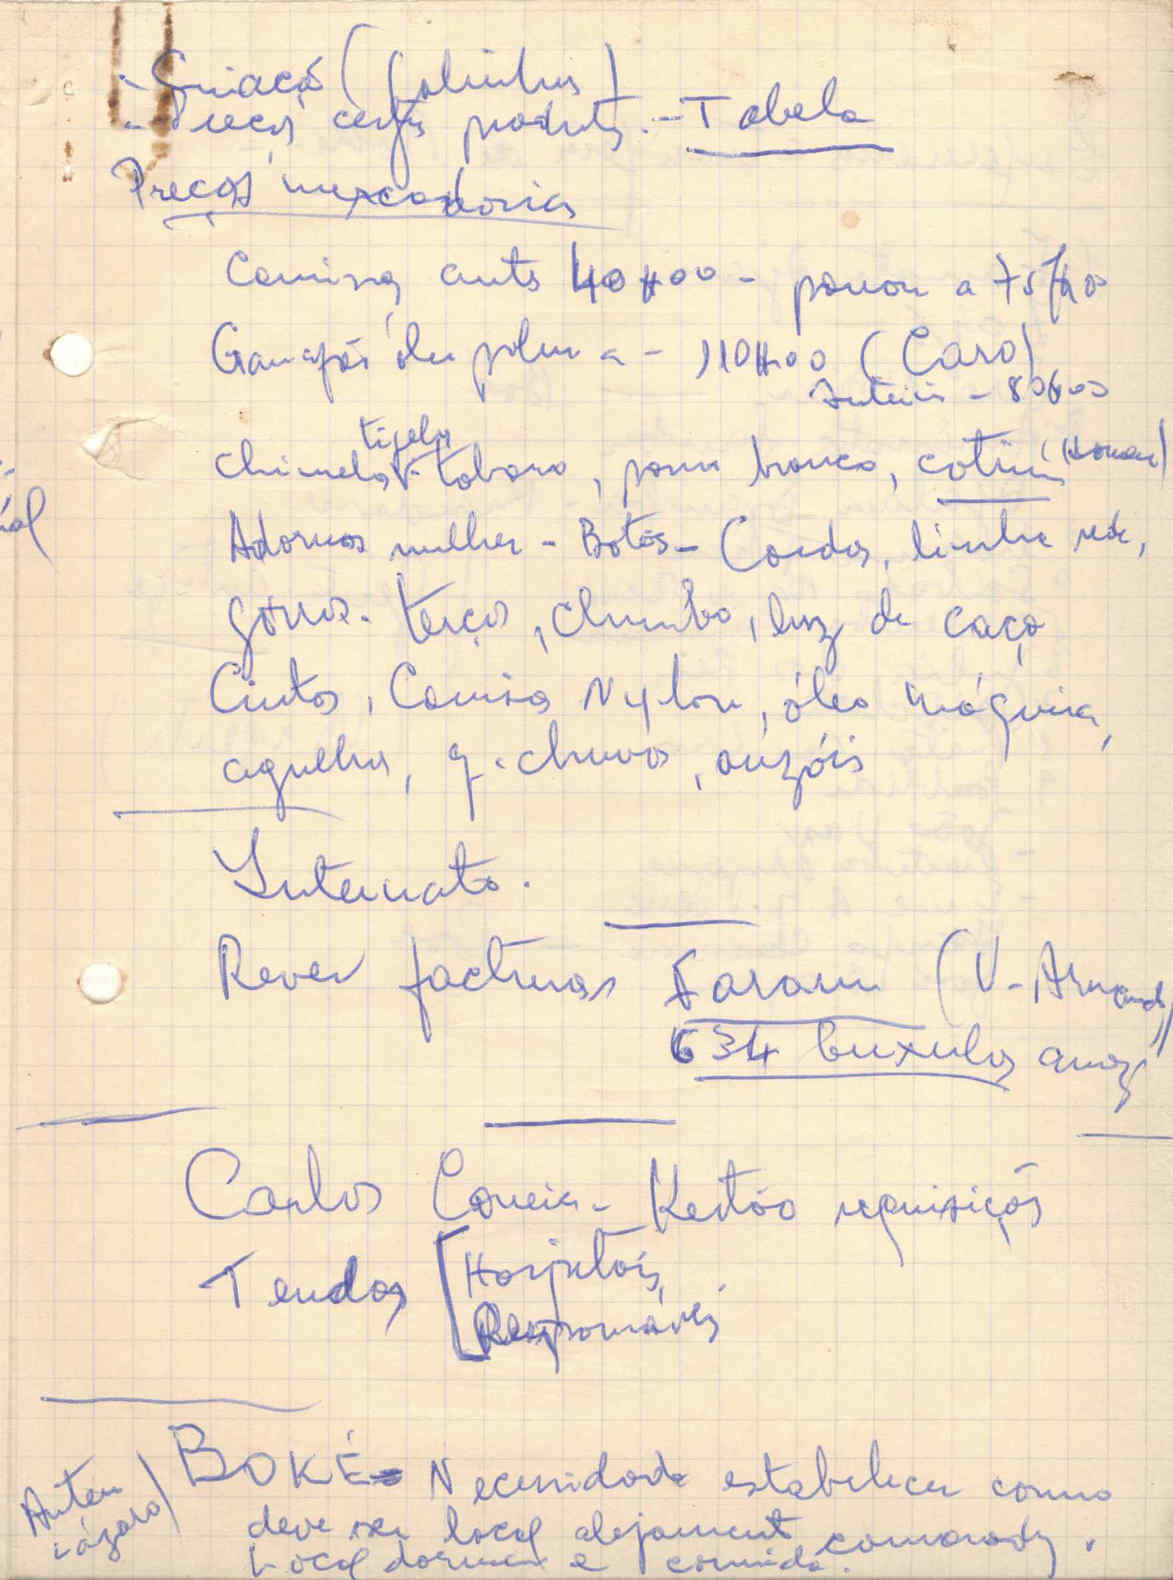 - Criação (Galinhas)
- Preços certos produtos. - Tabela
Preços mercadorias
Camisas, antes 40$00 - passou a 75$00
Garrafas óleo palma - 110$00 (Caro)
Anterior - 80$00
tigelas
chinelos, tabaco, pano branco, cotins (Homem)
Adornos mulher - Botões - Coudos, linha rede,
gorros. terços, chumbo, luz de caça
Cintos, Camisas Nylon, óleo máquina,
agulhas, g. chuvas, anzóis
Internato.
Rever facturas Farim (V. Armando)
634 buxulos arroz
Carlos Correia - Questão requisições
Tendas [Hospitais
Responsáveis
BOKÉ - Necessidade estabelecer como
deve ser local alojamento camaradas.
Local dormir e comida.
Antero
Lázaro)